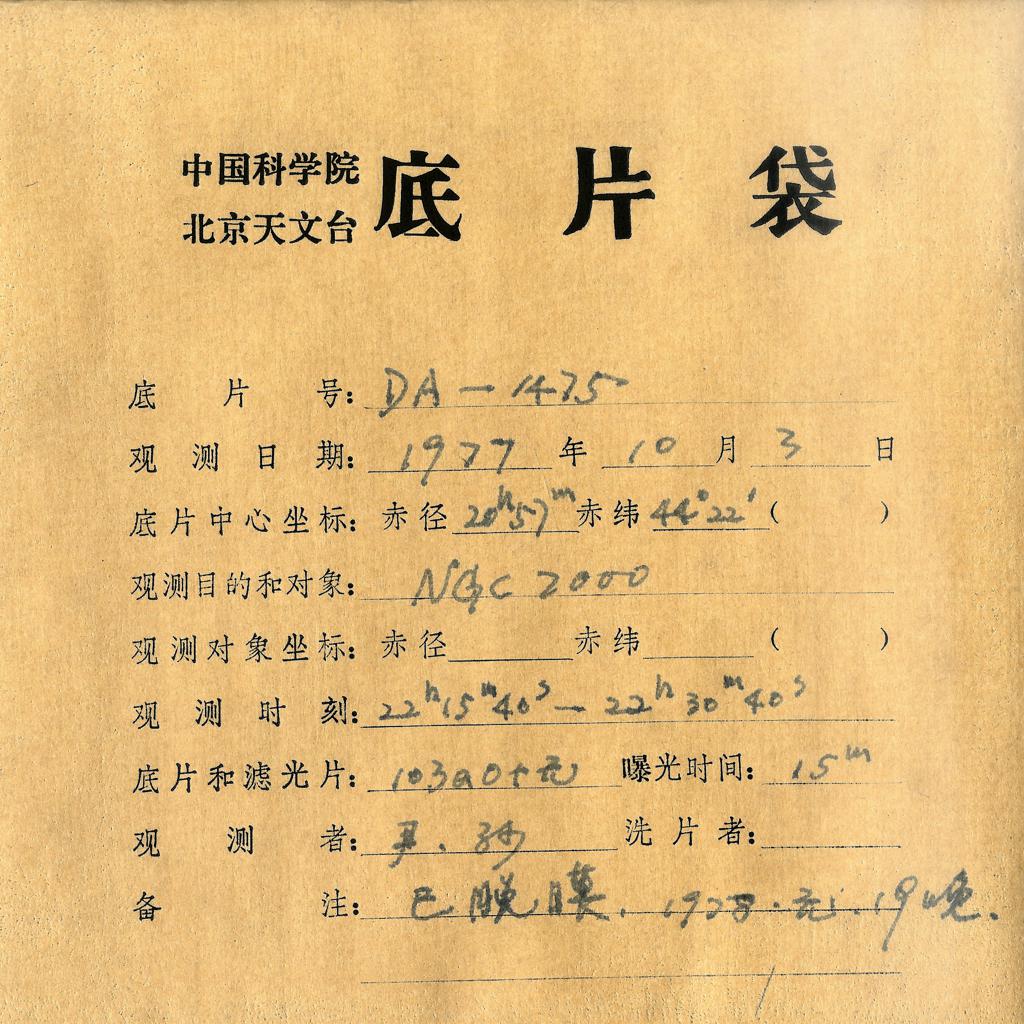 中国科学院
北京天文台
底片袋
底片号: DA-1475
观测日期: 1977年10月3日
底片中心坐标: 赤径 20h57m 赤纬 44°22′ ( )
观测目的和对象: NGC 2000
观测对象坐标: 赤径 赤纬 ( )
观测时刻: 22h15m40s — 22h30m40s
底片和滤光片: 103aO+无 曝光时间: 15m
观测者: 洗片者:
备注: 已脱膜. 19 晚.